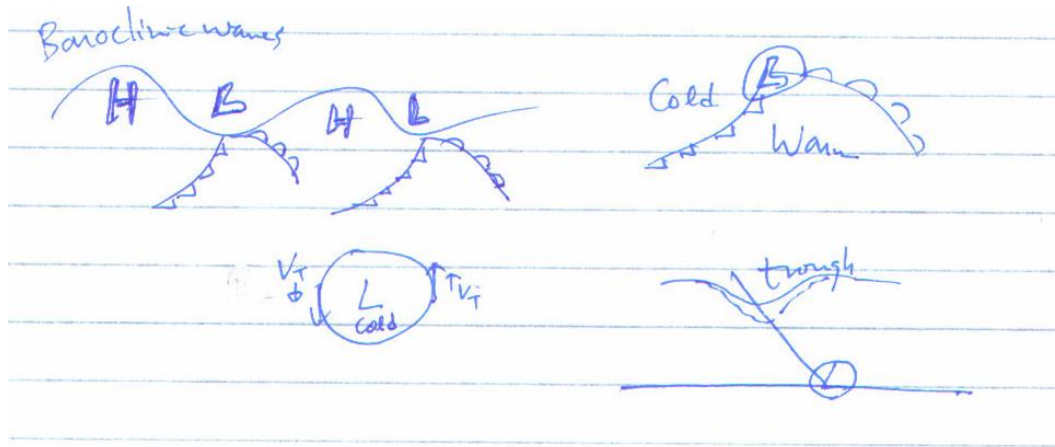 Baroclinic waves
H L H L
L
Cold
Warm
V_T L V_T
Cold
trough
L